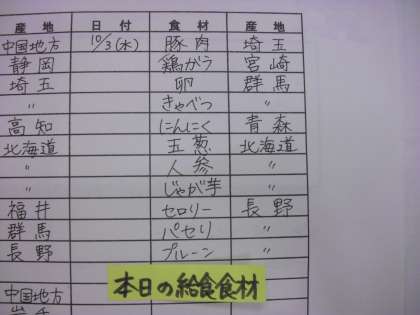 産地 日付 食材 産地
中国地方 10/3(水) 豚肉 埼玉
静岡 鶏がら 宮崎
埼玉 卵 群馬
〃 きゃべつ 〃
高知 にんにく 青森
北海道 玉葱 北海道
〃 人参 〃
〃 じゃが芋 〃
福井 セロリー 長野
群馬 パセリ 〃
長野 プルーン 〃
本日の給食食材
中国地方